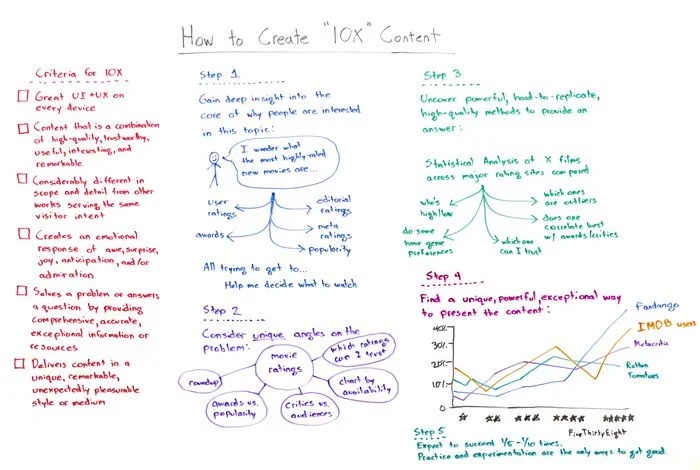 How to Create "10X" Content
Criteria for 10X
Great UI + UX on
every device
Content that is a combination
of high-quality, trustworthy,
useful, interesting, and
remarkable
Considerably different in
scope and detail from other
works serving the same
visitor intent
Creates an emotional
response of awe, surprise,
joy, anticipation, and/or
admiration
Solves a problem or answers
a question by providing
comprehensive, accurate,
exceptional information or
resources
Delivers content in a
unique, remarkable,
unexpectedly pleasurable
style or medium
Step 1
Gain deep insight into the
core of why people are interested
in this topic:
I wonder what
the most highly rated
new movies are...
user
ratings
awards
editorial
ratings
meta
ratings
popularity
All trying to get to...
Help me decide what to watch
Step 2
Consider unique angles on the
problem:
movie
ratings
which ratings
can I trust
roundup
chart by
availability
awards vs.
popularity
critics vs.
audiences
Step 3
Uncover powerful, hard-to-replicate,
high-quality methods to provide an
answer:
Statistical Analysis of X films
across major rating sites compared
who's
high/low
do some
have genre
preferences
which one
can I trust
which ones
are outliers
does one
correlate best
w/ awards/critics
Step 4
Find a unique, powerful, exceptional way
to present the content:
40%
30%
20%
10%
0
Fandango
IMDB users
Metacritic
Rotten
Tomatoes
FiveThirtyEight
Step 5
Expect to succeed 1/5 - 1/10 times.
Practice and experimentation are the only ways to get good.